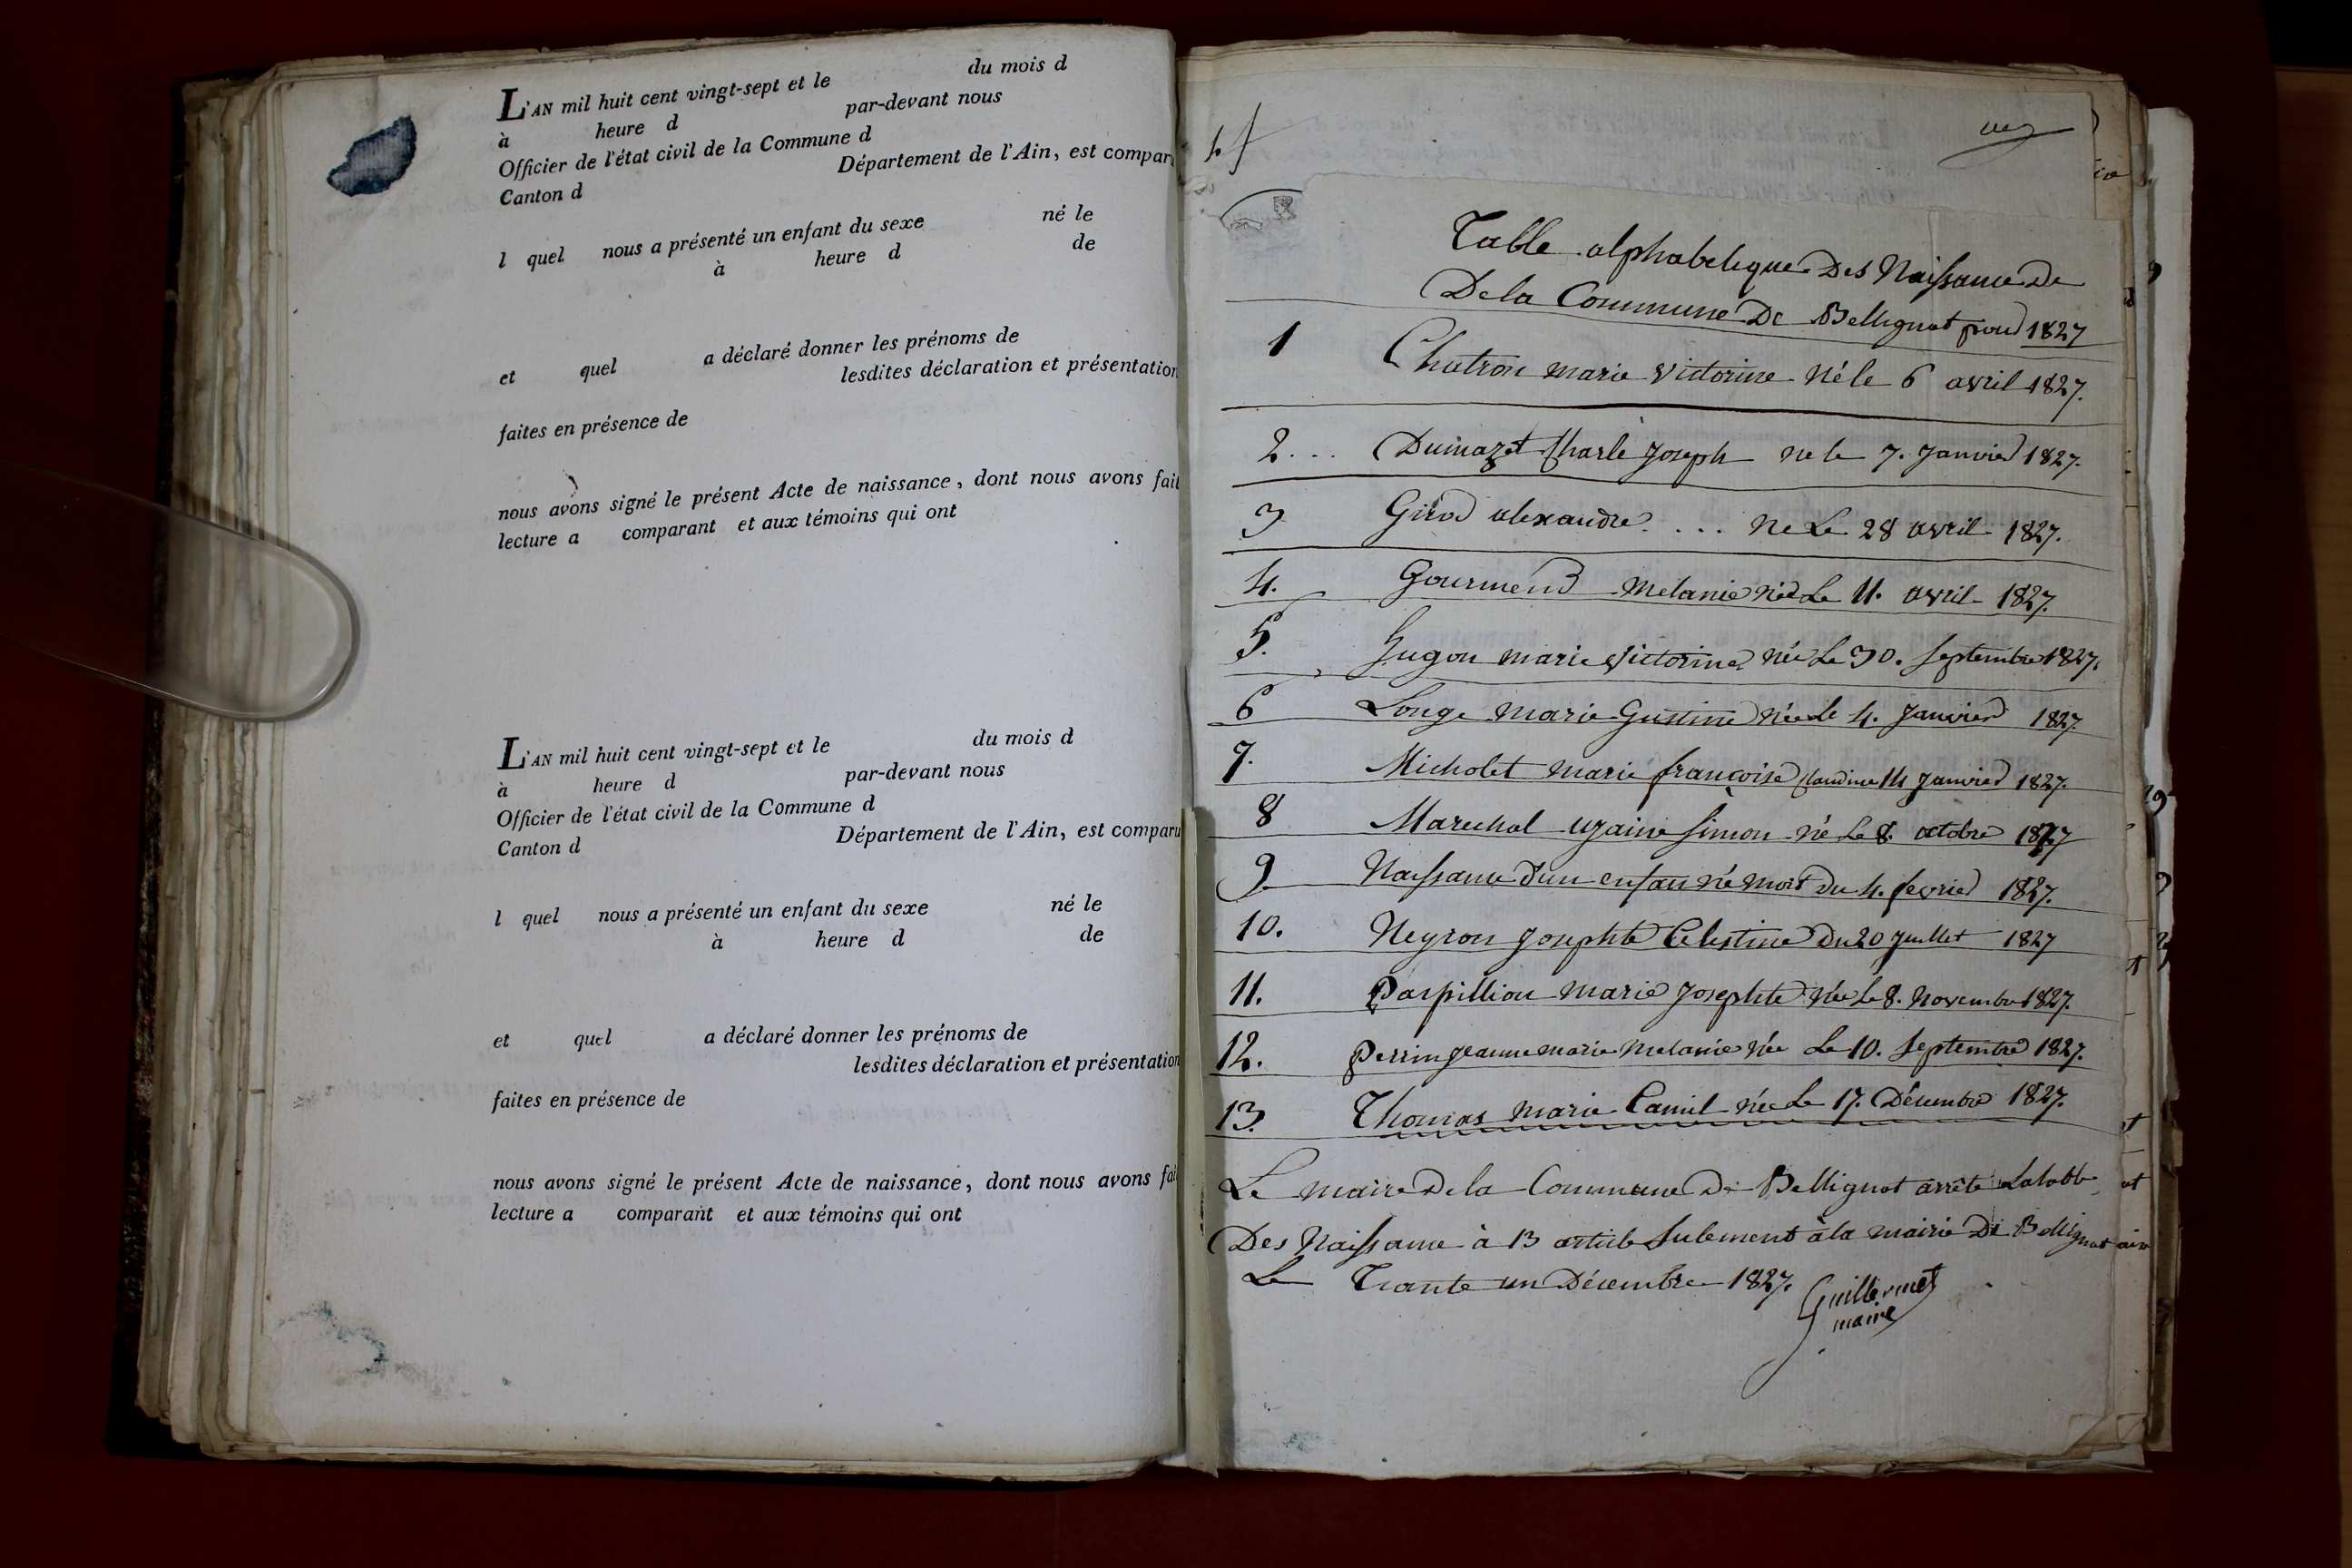 L'AN mil huit cent vingt-sept et le du mois d
à heure d par-devant nous
Officier de l'état civil de la Commune d
Canton d Département de l'Ain, est comparu
l quel nous a présenté un enfant du sexe né le
à heure d de
et quel a déclaré donner les prénoms de
lesdites déclaration et présentation
faites en présence de
nous avons signé le présent Acte de naissance, dont nous avons fait
lecture a comparant et aux témoins qui ont
L'AN mil huit cent vingt-sept et le du mois d
à heure d par-devant nous
Officier de l'état civil de la Commune d
Canton d Département de l'Ain, est comparu
l quel nous a présenté un enfant du sexe né le
à heure d de
et quel a déclaré donner les prénoms de
lesdites déclaration et présentation
faites en présence de
nous avons signé le présent Acte de naissance, dont nous avons fai
lecture a comparant et aux témoins qui ont
Table alphabeteque Des Naissance De
De la Commune De Bellignat pour 1827
1 Chatron marie victorine Né le 6 avril 1827.
2... Dumazet Charle Joseph ne le 7. Janvier 1827.
3 Girod alexandre.... Ne Le 28 avril 1827.
4. Gourmend Melanie Née Le 11. avril 1827.
5. Gugon marie Victorine Née Le 30. Septembre 1827.
6 Longe Marie Gustine Née Le 4. Janvier 1827.
7. Micholet marie françoise Claudine 14 Janvier 1827.
8 Marechal Simon Né Le 8. octobre 1827
9. Naissance d'un enfan né mort Du 4. fevrier 1827.
10. Neyron Josephte Celestine Du 20 Juillet 1827
11. Paspillion Marie Josephte Née Le 8. Novembre 1827.
12. Perrin jeanne marie Melanie Née Le 10. Septembre 1827.
13. Thomas Marie Camil Née Le 17. Décembre 1827.
Le maire De la Commune De Bellignat arrête La table
Des Naissance à 13 article Sulement à la mairie De Bellignat
Le Trante un Décembre 1827.
Guillermet
maire